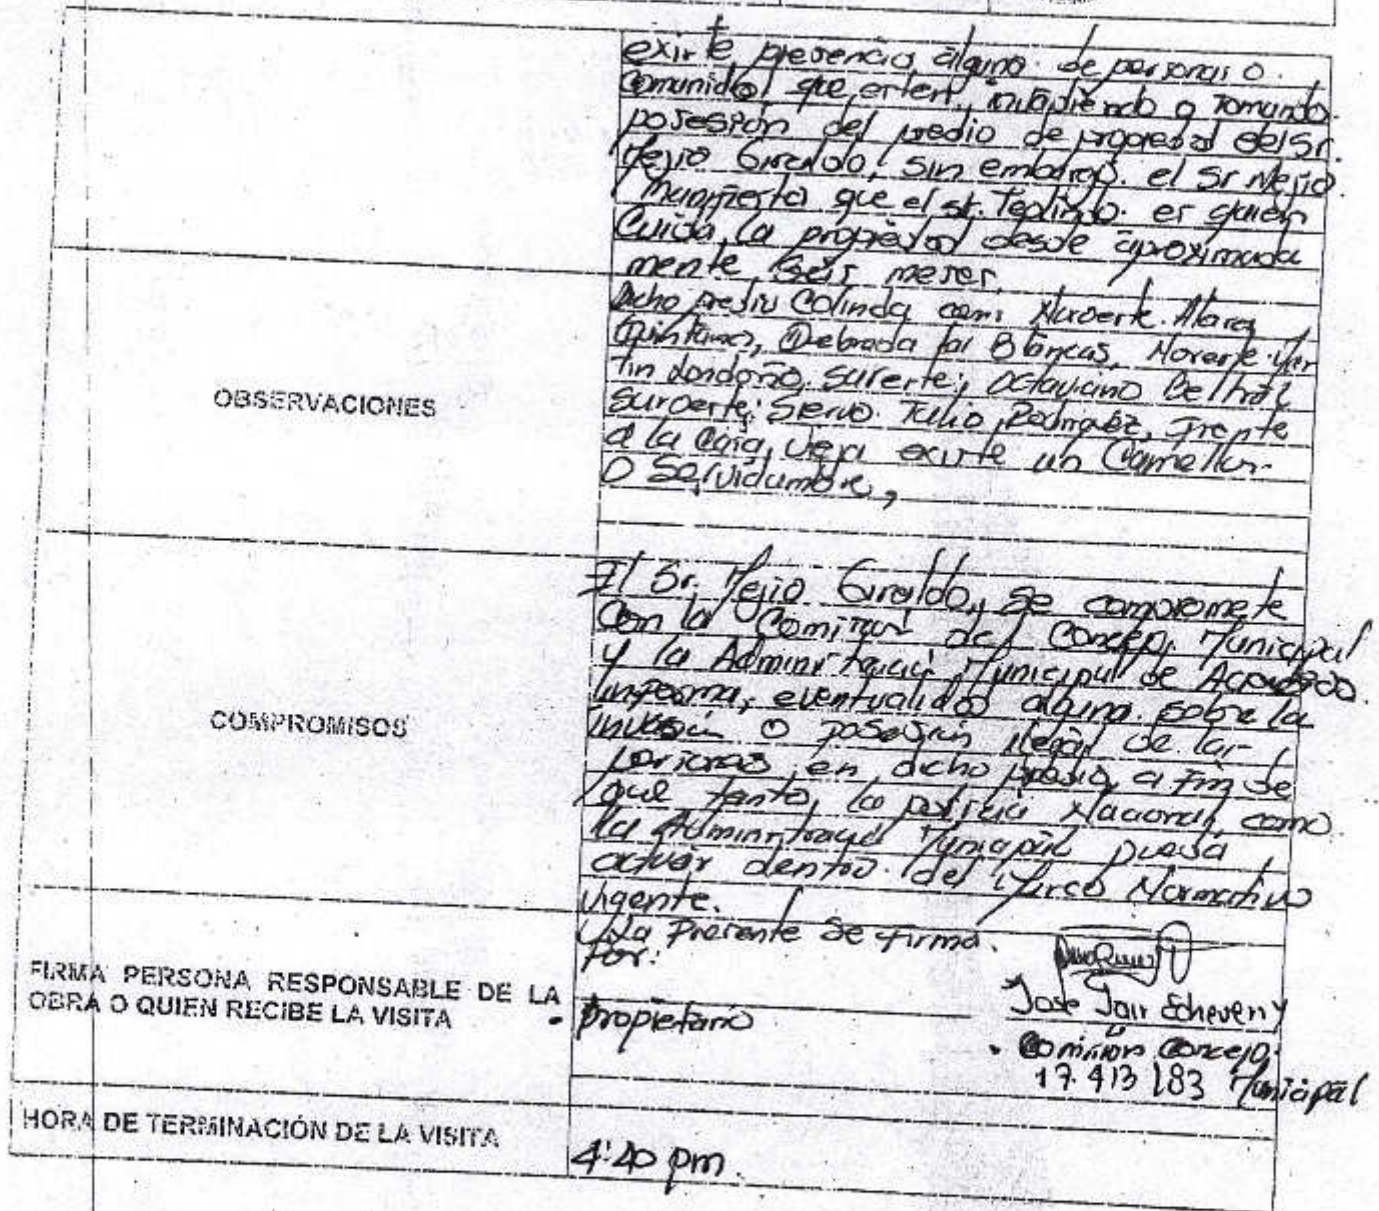 existe presencia alguna de personas o
comunidad que esten invadiendo o tomando
posesión del predio de propiedad del Sr.
Mejia Giraldo, sin embargo el Sr Mejia
manifiesta que el sr. Teolindo es quien
Cuida la propiedad desde aproximada
mente Seis meses.
OBSERVACIONES
Dicho predio Colinda com Noroeste
Quintana, Quebrada las Blancas, Noreste
tin Londoño, sureste; Octaviano Beltran
suroeste; Servo Tulio Rodriguez, Frente
a la Casa vieja existe un Camellon
O Servidumbre,
COMPROMISOS
El Sr. Mejia Giraldo, se compromete
Con la Comision del Concejo Municipal
y la Administración Municipal de
informar eventualidad alguna sobre la
invasión o posesión ilegal de las
personas en dicho predio, a fin de
que tanto la policia Nacional como
la Administración Municipal pueda
actuar dentro del Marco Normativo
vigente.
La Presente Se firma.
FIRMA PERSONA RESPONSABLE DE LA
OBRA O QUIEN RECIBE LA VISITA
Por:
propietario
Jose Jair Echeverry
Comision Concejo
17.413 183 Municipal
HORA DE TERMINACIÓN DE LA VISITA
4:40 pm.